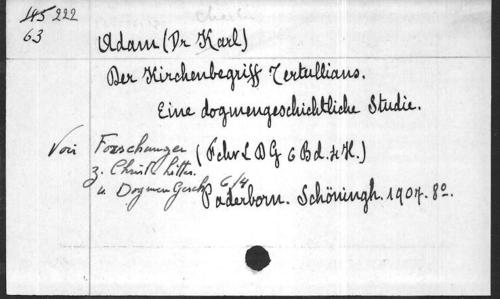 145 222
63
Adam (Dr Karl)
Der Kirchenbegriff Tertullians.
Eine dogmengeschichtliche Studie.
Voir Forschungen (FchrLDG 6 Bd. 4 H.)
z. Christl. Litter.
u. Dogmen Gesch 6/4
Paderborn. Schöningh. 1907. 8º.